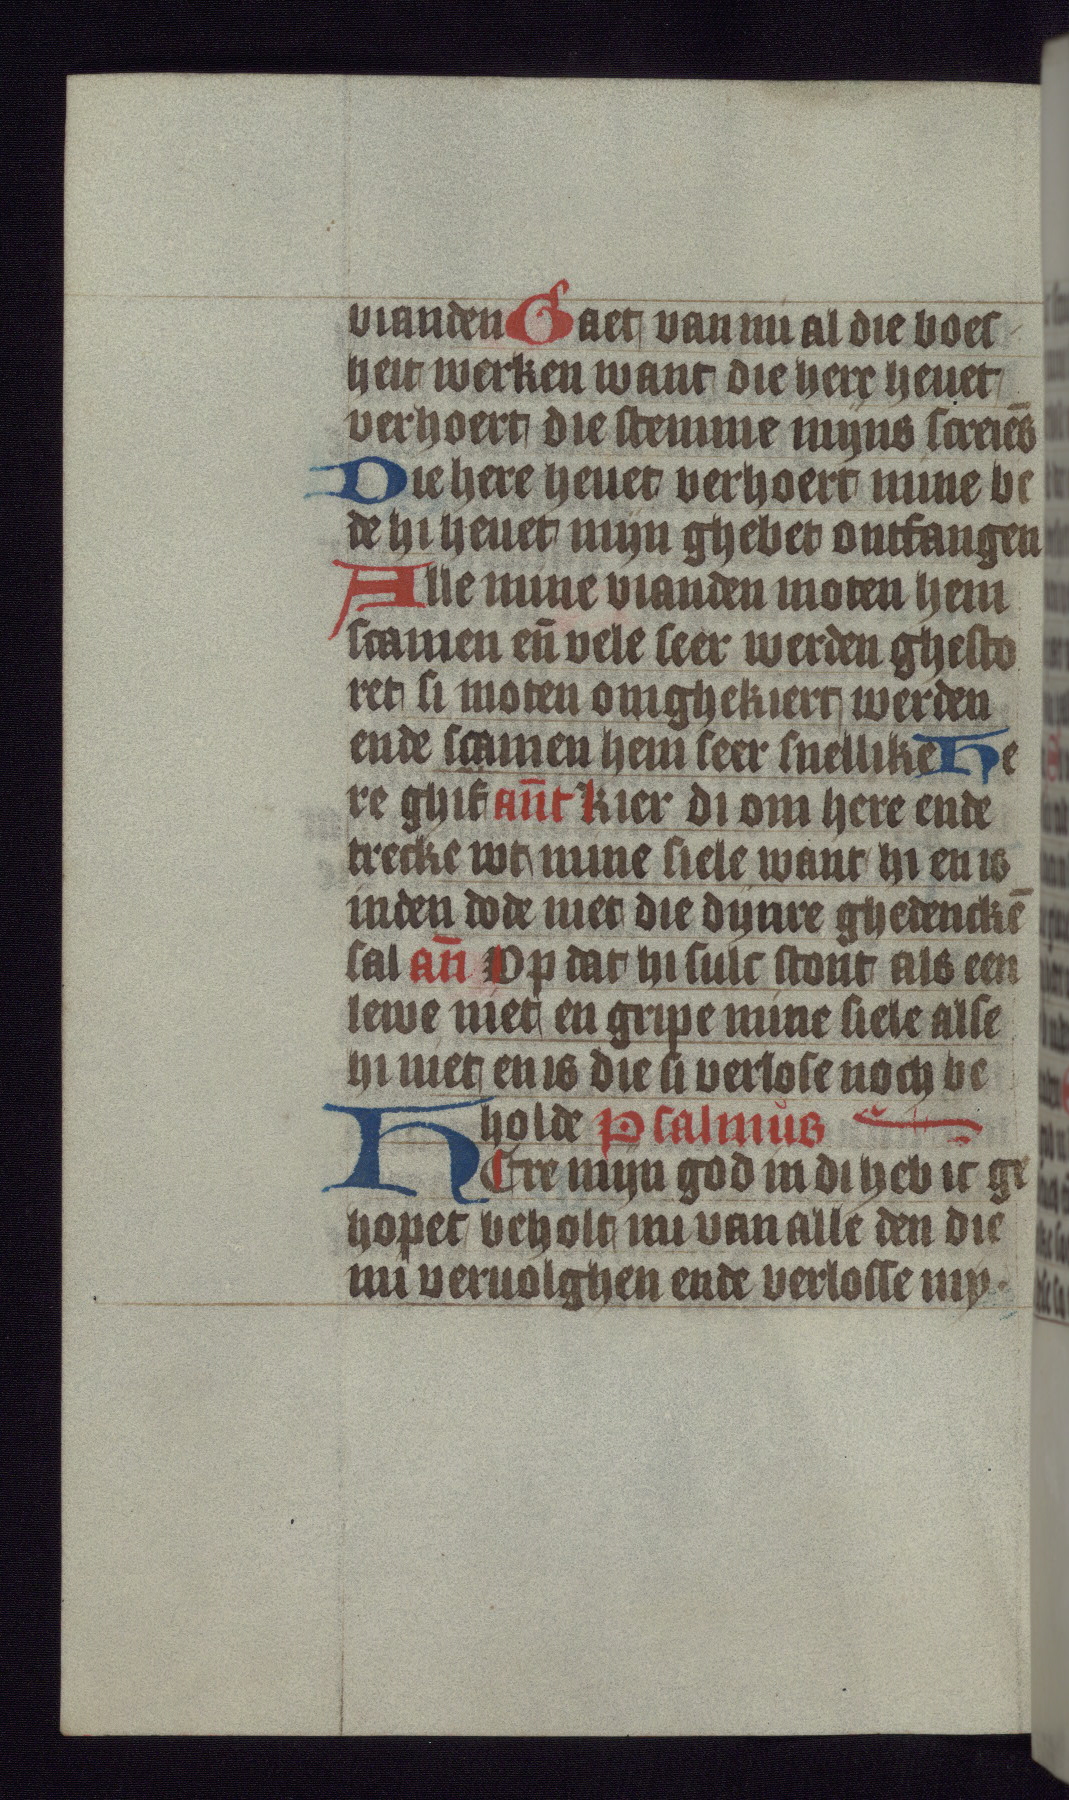 vianden Gaet van mi al die boes
heit werken want die here heuet
verhoert die stemme mijns screiēs
Die here heuet verhoert mine be
de hi heuet mijn ghebet ontfangen
Alle mine vianden moten hem
scamen eñ vele seer werden ghesto
ret si moten omghekiert werden
ende scamen hem seer snellike He
re ghif an̄t Kier di om here ende
trecke wt mine siele want hi en is
inden dode niet die dijnre ghedenckē
sal an̄ Op dat hi sulc stont als een
lewe niet en gripe mine siele alse
hi niet en is die si verlose noch be
holde Psalmus
HEre mijn god in di heb ic ge
hopet beholt mi van alle den die
mi veruolghen ende verlosse my.